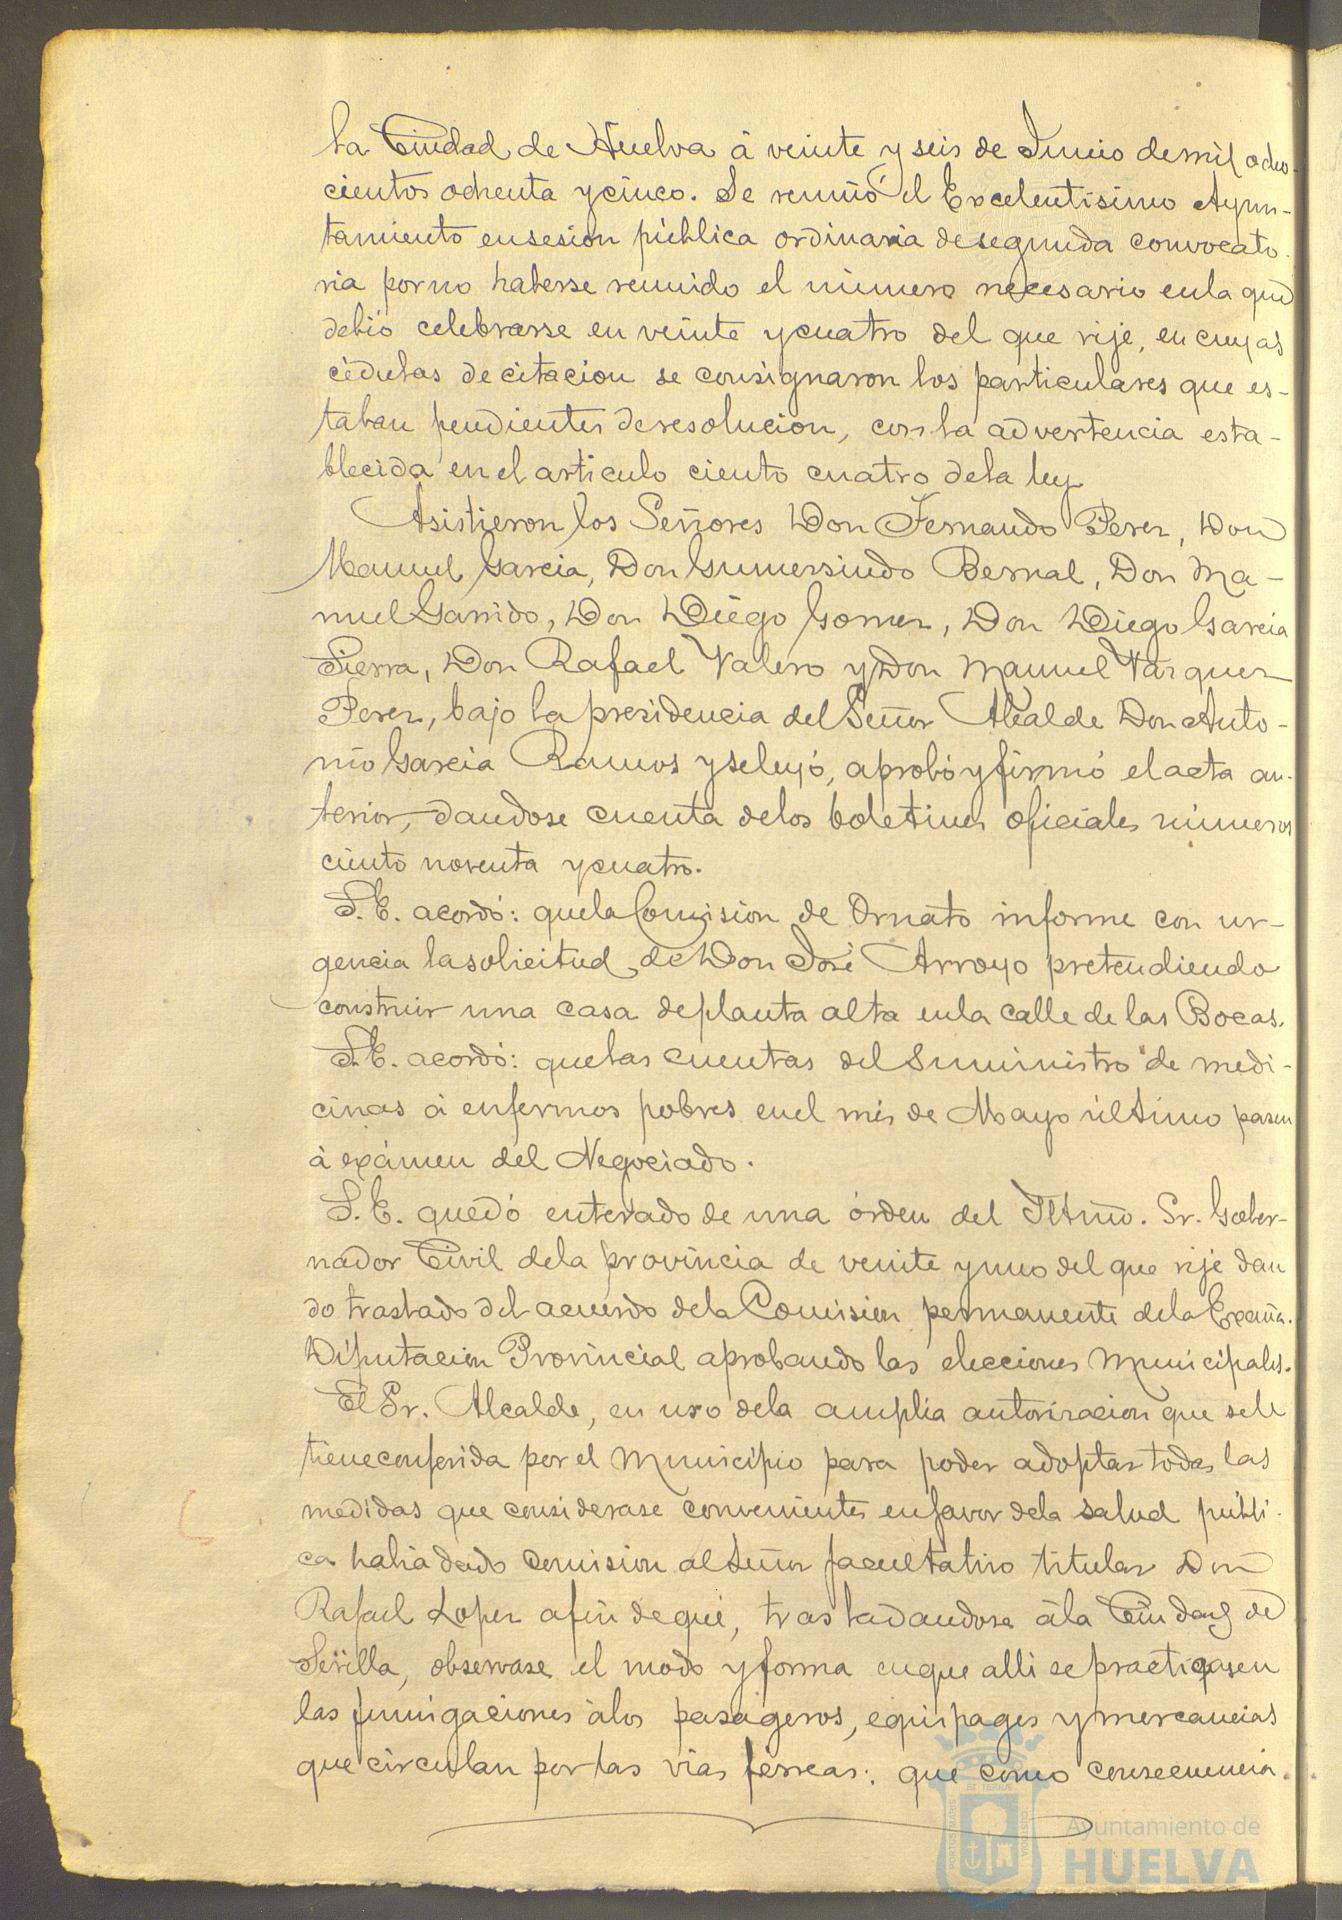 la Ciudad de Huelva á veinte y seis de Junio de mil ocho-
cientos ochenta y cinco. Se reunió el Excelentísimo Ayun-
tamiento en sesion pública ordinaria de segunda convocato-
ria por no haberse reunido el número necesario en la que
debió celebrarse en veinte y cuatro del que rije, en cuyas
cédulas de citacion se consignaron los particulares que es-
taban pendientes de resolucion, con la advertencia esta-
blecida en el articulo ciento cuatro de la ley
Asistieron los Señores Don Fernando Perez, Don
Manuel Garcia, Don Gumersindo Bernal, Don Ma-
nuel Garrido, Don Diego Gomez, Don Diego Garcia
Sierra, Don Rafael Valero y Don Manuel Vazquez
Perez, bajo la presidencia del Señor Alcalde Don Anto-
nio Garcia Ramos y se leyó, aprobó y firmó el acta an-
terior, dandose cuenta de los boletines oficiales números
ciento noventa y cuatro.
S.E. acordó: que la Comision de Ornato informe con ur-
gencia la solicitud de Don José Arroyo pretendiendo
construir una casa de planta alta en la calle de las Bocas.
S.E. acordó: que las cuentas del suministro de medi-
cinas á enfermos pobres en el mes de Mayo último pasen
á exámen del Negociado.
S.E. quedó enterado de una órden del Iltmo. Sr. Gober-
nador Civil de la provincia de veinte y uno del que rije dan
do traslado del acuerdo de la Comision permanente de la Excma.
Diputacion Provincial aprobando las elecciones Municipales.
El Sr. Alcalde, en uso de la amplia autorizacion que se le
tiene conferida por el Municipio para poder adoptar todas las
medidas que considerase convenientes en favor de la salud públi-
ca habia dado comision al Señor facultativo titular Don
Rafael Lopez a fin de que, trasladandose á la Ciudad de
Sevilla, observase el modo y forma en que alli se practicasen
las fumigaciones á los pasageros, equipages y mercancias
que circulan por las vias férreas: que como consecuencia
Ayuntamiento de
HUELVA